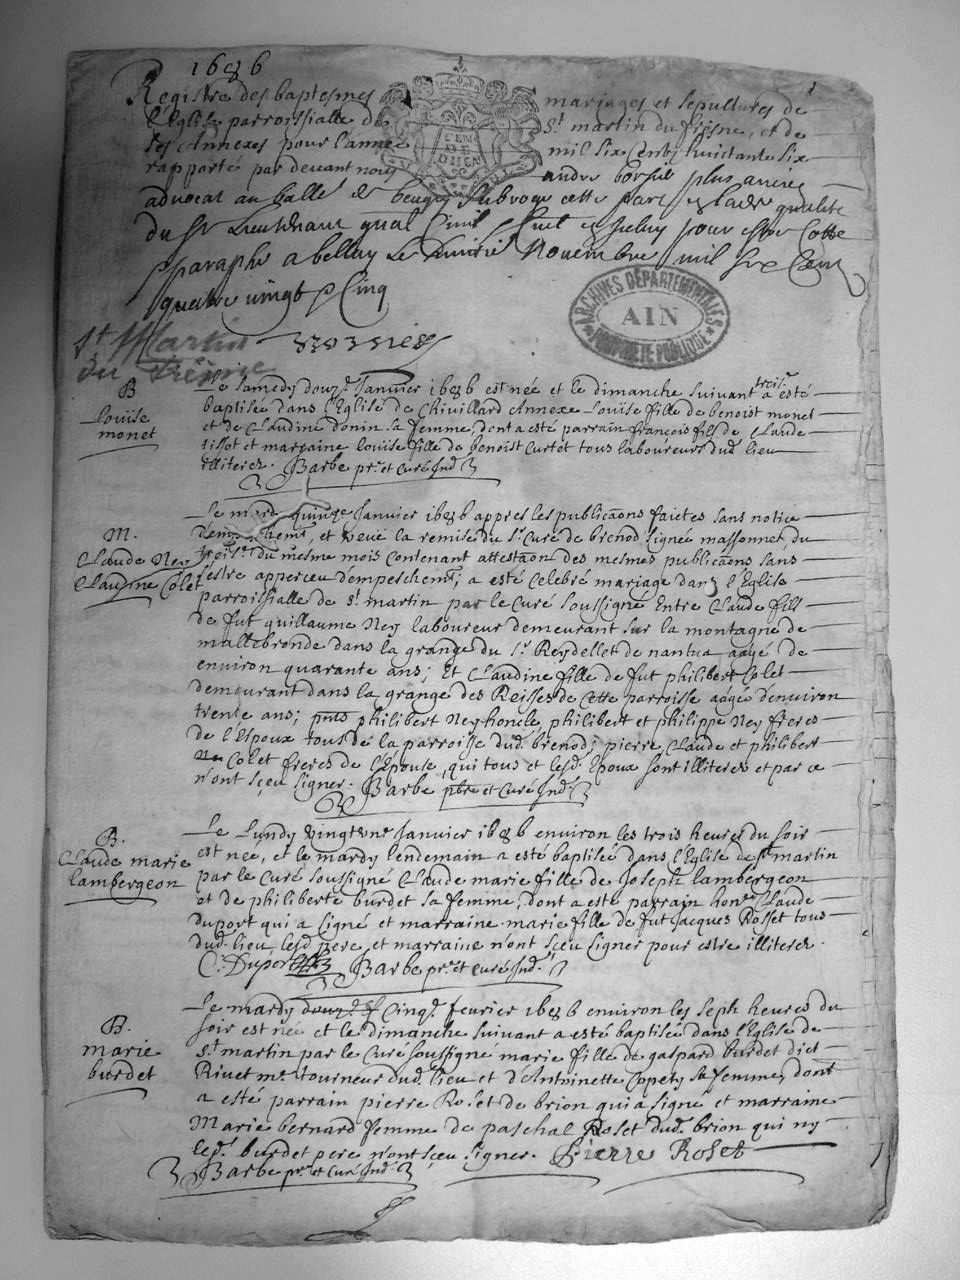 1686
Registre des baptesmes mariages et sepultures de
l'Eglise parroissialle de St martin du fresne, et de
ses Annexes pour l'année mil six Cents huictante six
rapporté par devant nous andré plus ancien
advocat au balliage de beugey subrogé cette part qualité
du Sr Lieutenant pour estre Cotté
pparaphé a belley Le Novembre mil six Cent
quatre vingt Cinq
GEN DE DIJON
ARCHIVES DÉPARTEMENTALES
AIN
PROPRIÉTÉ PUBLIQUE
St Martin
du Frêsne
B
Louïse
monet
Le samedy douze Janvier 1686 est née et le dimanche suivant trois.e a esté
baptisée dans l'Eglise de Chivillard Annexe Louïse fille de benoist monet
et de Claudine donin sa femme, dont a esté parrain françois fils de Claude
tissot et marraine louïse fille de benoist Curtet tous laboureurs dud. lieu
illiterez. Barbe pr. et Curé Ind.
M.
Claude Ney
Claudine Colet
Le mardy quinze Janvier 1686 appres les publicaons faictes sans notice
d'empeschemt, et veüe la remise du Sr. Curé de brenod signée massonnet du
treis.e du mesme mois contenant attestaon des mesmes publicaons sans
s'estre apperceu d'empeschemt; a esté celebré mariage dans l'Eglise
parroissialle de St. martin par le Curé soussigné Entre Claude fils
de fut guillaume Ney laboureur demeurant sur la montagne de
mallebronde dans la grange du Sr. Reydellet de nantua aagé de
environ quarante ans; Et Claudine fille de fut philibert Colet
demeurant dans la grange des Reisses de Cette parroisse aagée d'environ
trente ans; pnts philibert Ney honcle, philibert et philippe Ney freres
de l'Espoux tous de la parroisse dud. brenod; pierre Claude et philibert
Colet freres de l'Epouse, qui tous et lesd. Epoux sont illiterez et par ce
n'ont sçeu signer. Barbe pbre et Curé Ind.
B.
Claude marie
lambergeon
Le Lundy vingt une Janvier 1686 environ les trois heures du soir
est née, et le mardy lendemain a esté baptisée dans l'Eglise de St martin
par le Curé soussigné Claude marie fille de Joseph lambergeon
et de philiberte burdet sa femme, dont a esté parrain hon. Claude
duport qui a signé et marraine marie fille de fut Jacques Rosset tous
dud. lieu lesd. pere, et marraine n'ont sçeu signer pour estre illiterez.
C. Duport Barbe pr. et Curé Ind.
B.
marie
burdet
Le mardy Cinq.e fevrier 1686 environ les sept heures du
soir est née et le dimanche suivant a esté baptisée dans l'Eglise de
St. martin par le Curé soussigné marie fille de gaspard burdet dict
Rivet me. tourneur dud. lieu et d'Antoinette Copety sa femme, dont
a esté parrain pierre Roset de brion qui a signé et marraine
Marie bernard femme de paschal Roset dud. brion qui ny
led. burdet pere n'ont sçeu signer. Pierre Roset
Barbe pr. et Curé Ind.